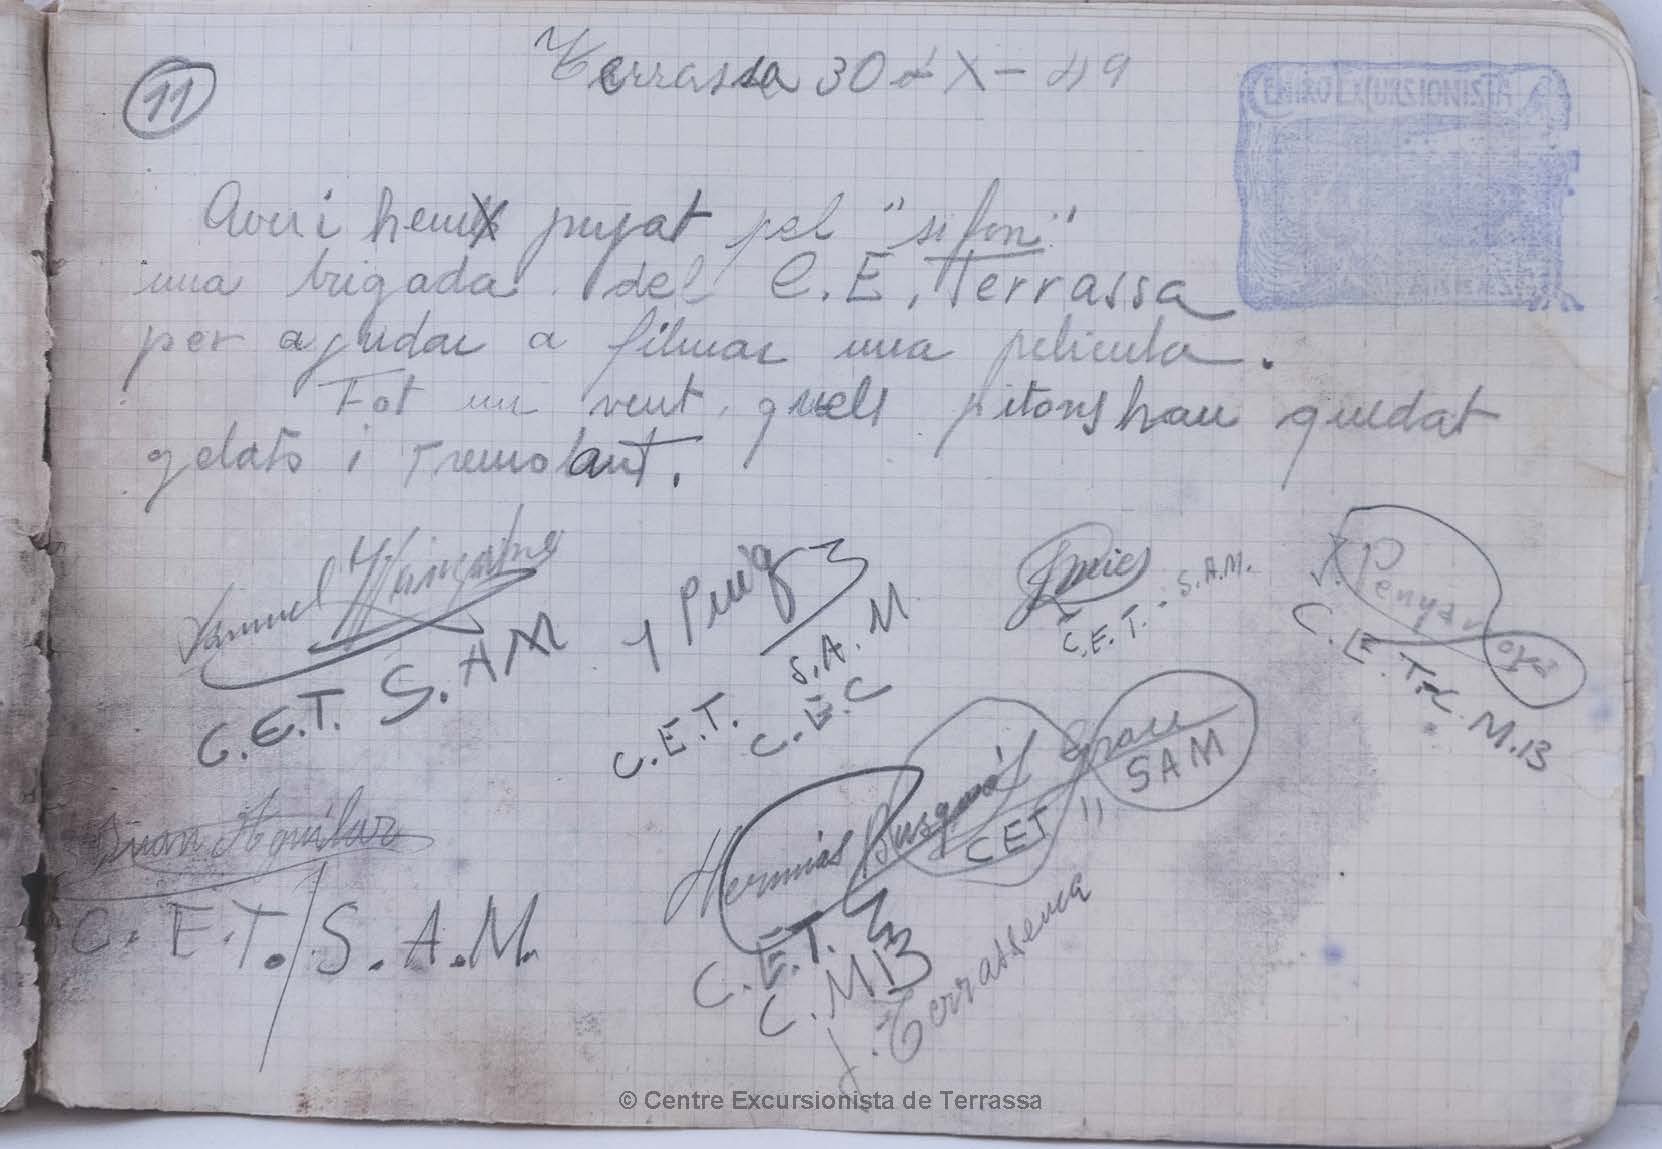 11
Terrassa 30 - X - 49
Avui hem pujat pel "sifon"
una brigada del C.E. Terrassa
per ajudar a filmar una pelicula.
Fot un vent, quels pitons han quedat
gelats i tremolant.
Samuel
C.E.T. S.AM
Puig
C.E.T. S.A.M
C.E.C
C.E.T. - S.A.M.
C.E.T.
Juan Aguilar
C.E.T. / S.A.M.
Herminas Busqués Grau
CET " SAM
C.E.T.
C.MB
J. Terrassenca
© Centre Excursionista de Terrassa